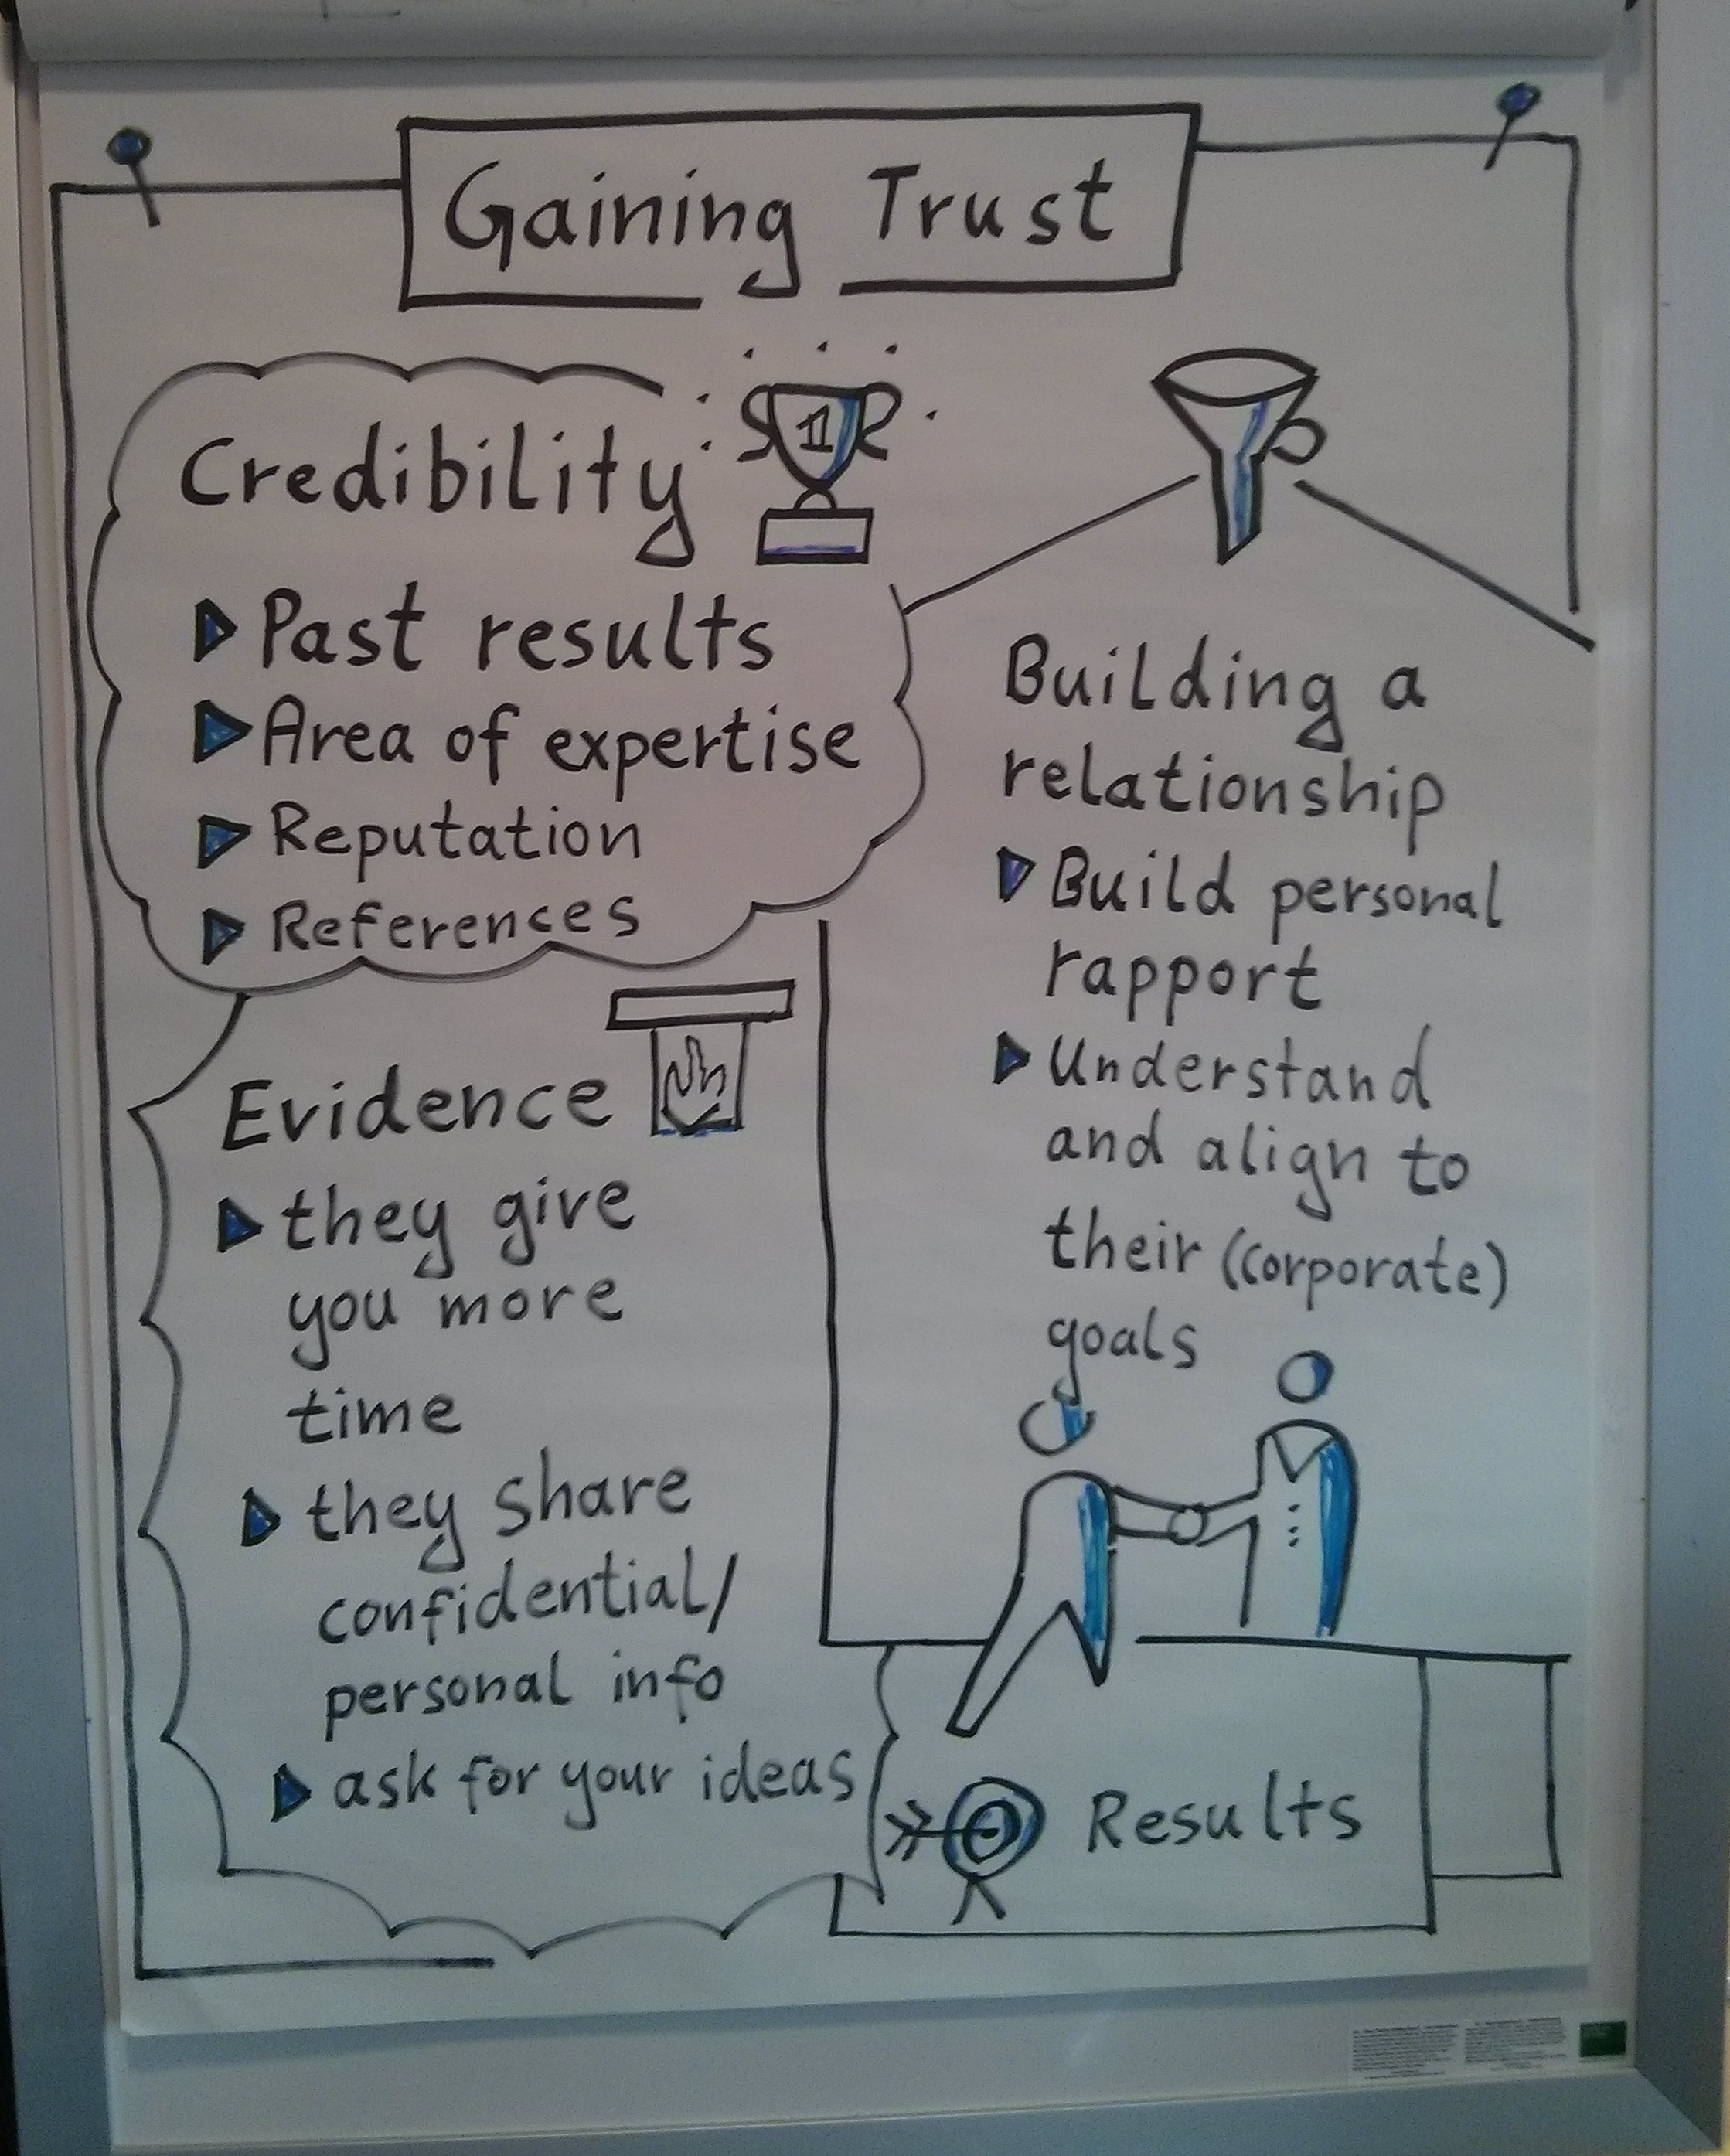 Gaining Trust
Credibility
1
Past results
Area of expertise
Reputation
References
Evidence
they give
you more
time
they share
confidential/
personal info
ask for your ideas
Building a
relationship
Build personal
rapport
Understand
and align to
their (corporate)
goals
Results